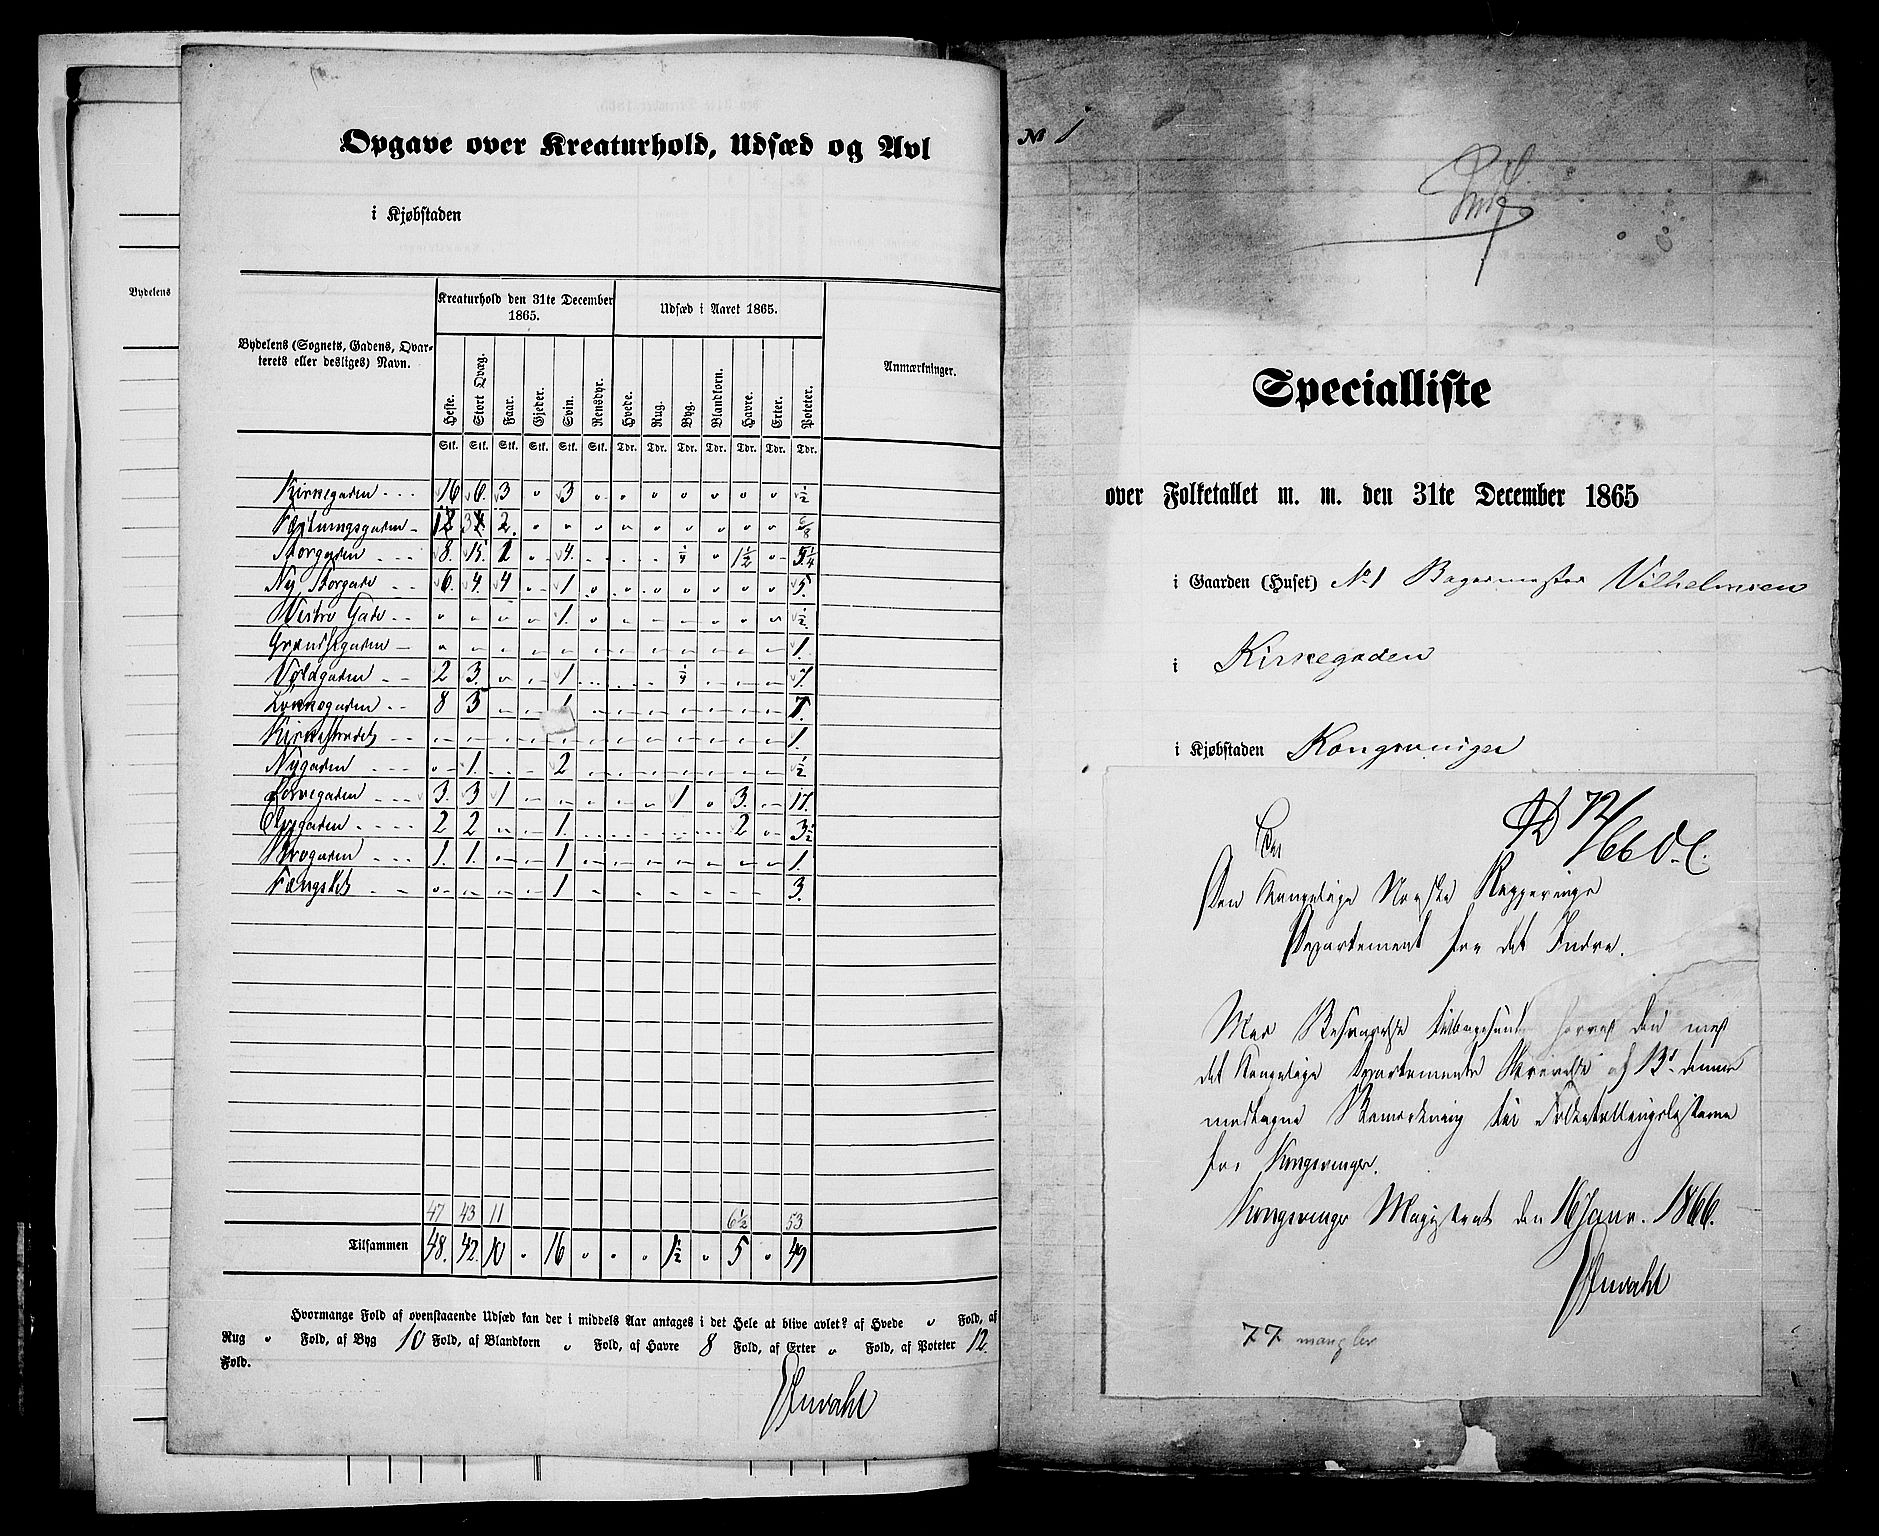 Bydelens
Opgave over Kreaturhold, Udsæd og Avl
i Kjøbstaden
Bydelens (Sognets, Gadens, Qvar-
terets eller desliges) Navn.
Kreaturhold den 31te December
1865.
Udsæd i Aaret 1865.
Anmærkninger.
Heste. Stort Qvæg. Faar. Gjeder. Svin. Rensdyr. Hvede. Rug. Byg. Blandkorn. Havre. Erter. Poteter.
Stk. Stk. Stk. Stk. Stk. Stk. Tdr. Tdr. Tdr. Tdr. Tdr. Tdr. Tdr.
Kirkegaden 16 6. 3 " 3 " " " " " " " 1/2
Fæstningsgaden 2 " " " " " " " " "
Storgaden 8. 15. 1 4. 1/4 " 1 1/2 "
Ny Storgade 6. 4. 4 " 1 " " " " " " " 5.
Vestre Gade " " " " 1. " " " " " " " 1/2.
Grændsegaden 1.
Voldgaden 2 3. " " 1 1/4 7.
8 5 1 7.
Kirkestrædet 1.
Nygaden " 1. 2 1/2
3. 3 1 1 " 3. 17.
Elvegaden 2 2 1. 2 " 3 1/2
Brogaden 1. 1. 1 1.
Fængslet " 1 3.
47 43 11 6 1/2 53
Tilsammen 48. 42. 10 " 16 " " " 1 1/2 " 5 " 49
Hvormange Fold af ovenstaaende Udsæd kan der i middels Aar antages i det Hele at blive avlet? af Hvede " Fold, af
Rug " Fold, af Byg 10 Fold, af Blandkorn " Fold, af Havre 8 Fold, af Erter " Fold, af Poteter 12.
Fold.
№ 1
Specialliste
over Folketallet m. m. den 31te December 1865
i Gaarden (Huset) No 1 Bagermester Vilhelmsen
i Kirkegaden
i Kjøbstaden Kongsvinger
72/66
Til
Den Kongelige Norske Regjerings
Departement for det Indre.
Med Besvarelse tilbagesendt den med
det Kongelige Departements Skrivelse af 13de dennes
modtagne Bemærkning til Folketællingslisterne
for Kongsvinger.
Kongsvinger Magistrat den 16 Janr. 1866.
77 mangler